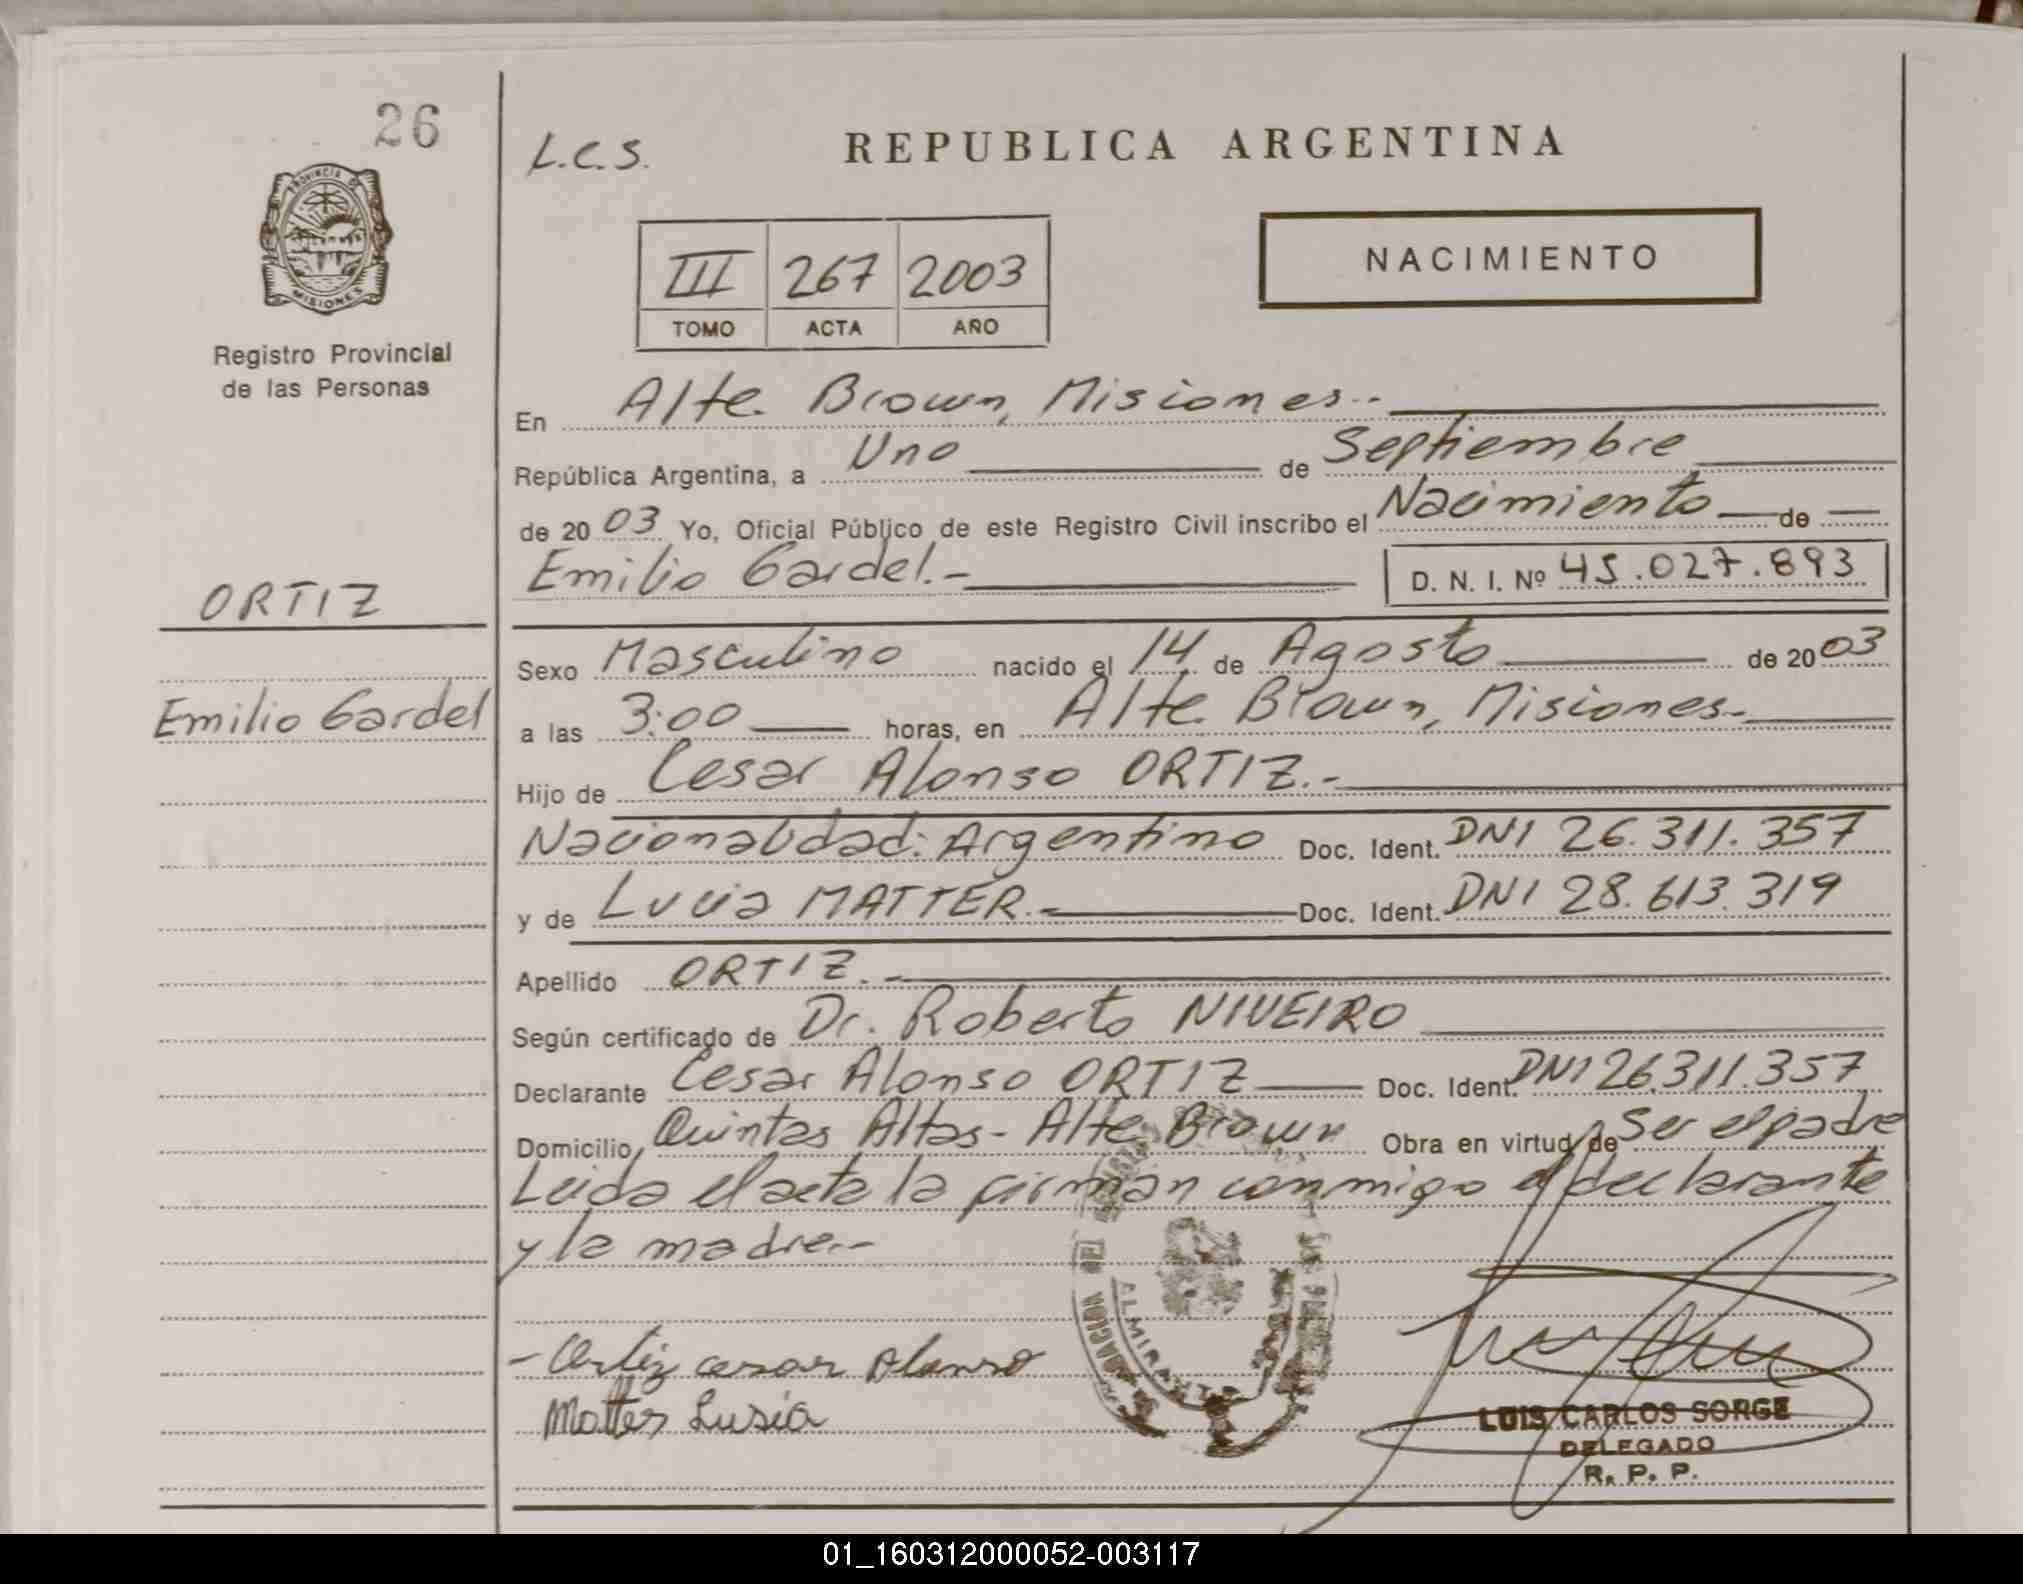 26
L.C.S.
REPUBLICA ARGENTINA
PROVINCIA DE
MISIONES
Registro Provincial
de las Personas
III 267 2003
TOMO ACTA AÑO
NACIMIENTO
En Alte. Brown, Misiones.-
República Argentina, a Uno de Septiembre
de 2003 Yo, Oficial Público de este Registro Civil inscribo el Nacimiento de
Emilio Gardel.- D. N. I. Nº 45.027.893
ORTIZ
Emilio Gardel
Sexo Masculino nacido el 14 de Agosto de 2003
a las 3:00 horas, en Alte. Brown, Misiones.-
Hijo de Cesar Alonso ORTIZ.-
Nacionalidad: Argentino Doc. Ident. DNI 26.311.357
y de Lucia MATTER.- Doc. Ident. DNI 28.613.319
Apellido ORTIZ.-
Según certificado de Dr. Roberto NIVEIRO
Declarante Cesar Alonso ORTIZ Doc. Ident. DNI 26.311.357
Domicilio Quintas Altas - Alte. Brown Obra en virtud de Ser el padre
Leida el acta la firman conmigo el declarante
y la madre.-
ALMIRANTE
- Ortiz cesar Alonso
Matter Lusia
LUIS CARLOS SORGE
DELEGADO
R. P. P.
01_160312000052-003117